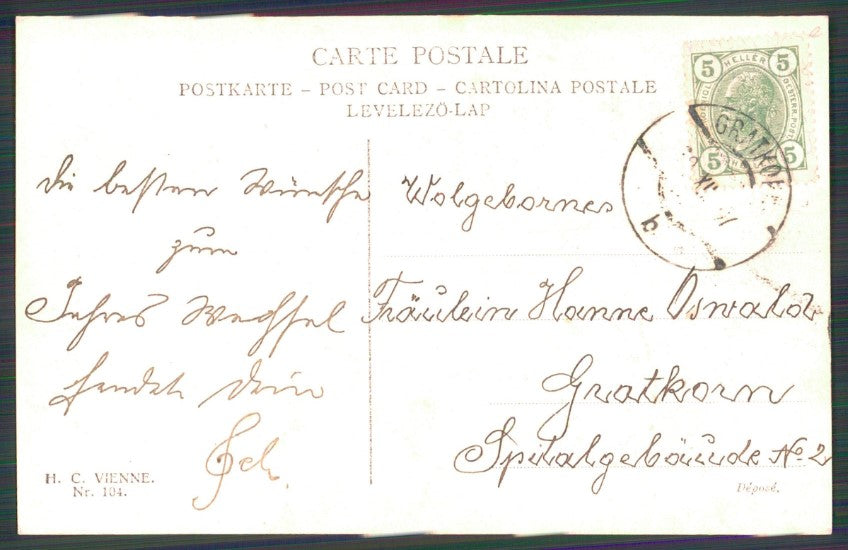 CARTE POSTALE
POSTKARTE – POST CARD – CARTOLINA POSTALE
LEVELEZÖ-LAP
5 HELLER 5
5 5
GRATKO
XII
b
die besten Wünsche
zum
Jahres Wechsel
sendet Dein
Wolgebornes
Fräulein Hanne Oswald
Gratkorn
Spitalgebäude No 2
H. C. VIENNE.
Nr. 104.
Déposé.